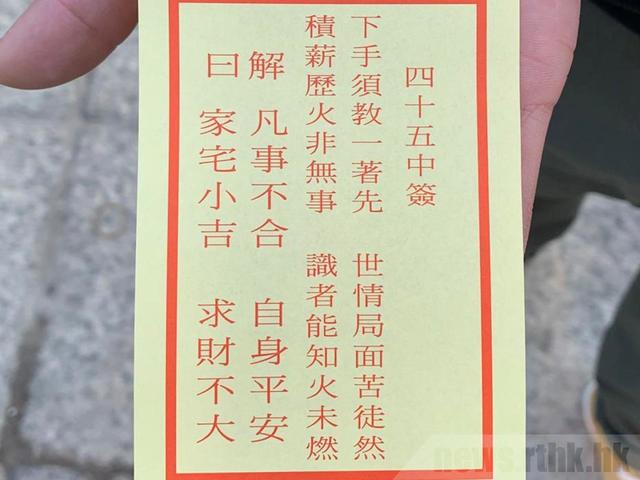 四十五中簽
下手須教一著先 世情局面苦徒然
積薪歷火非無事 識者能知火未燃
解 凡事不合 自身平安
曰 家宅小吉 求財不大
news.rthk.hk